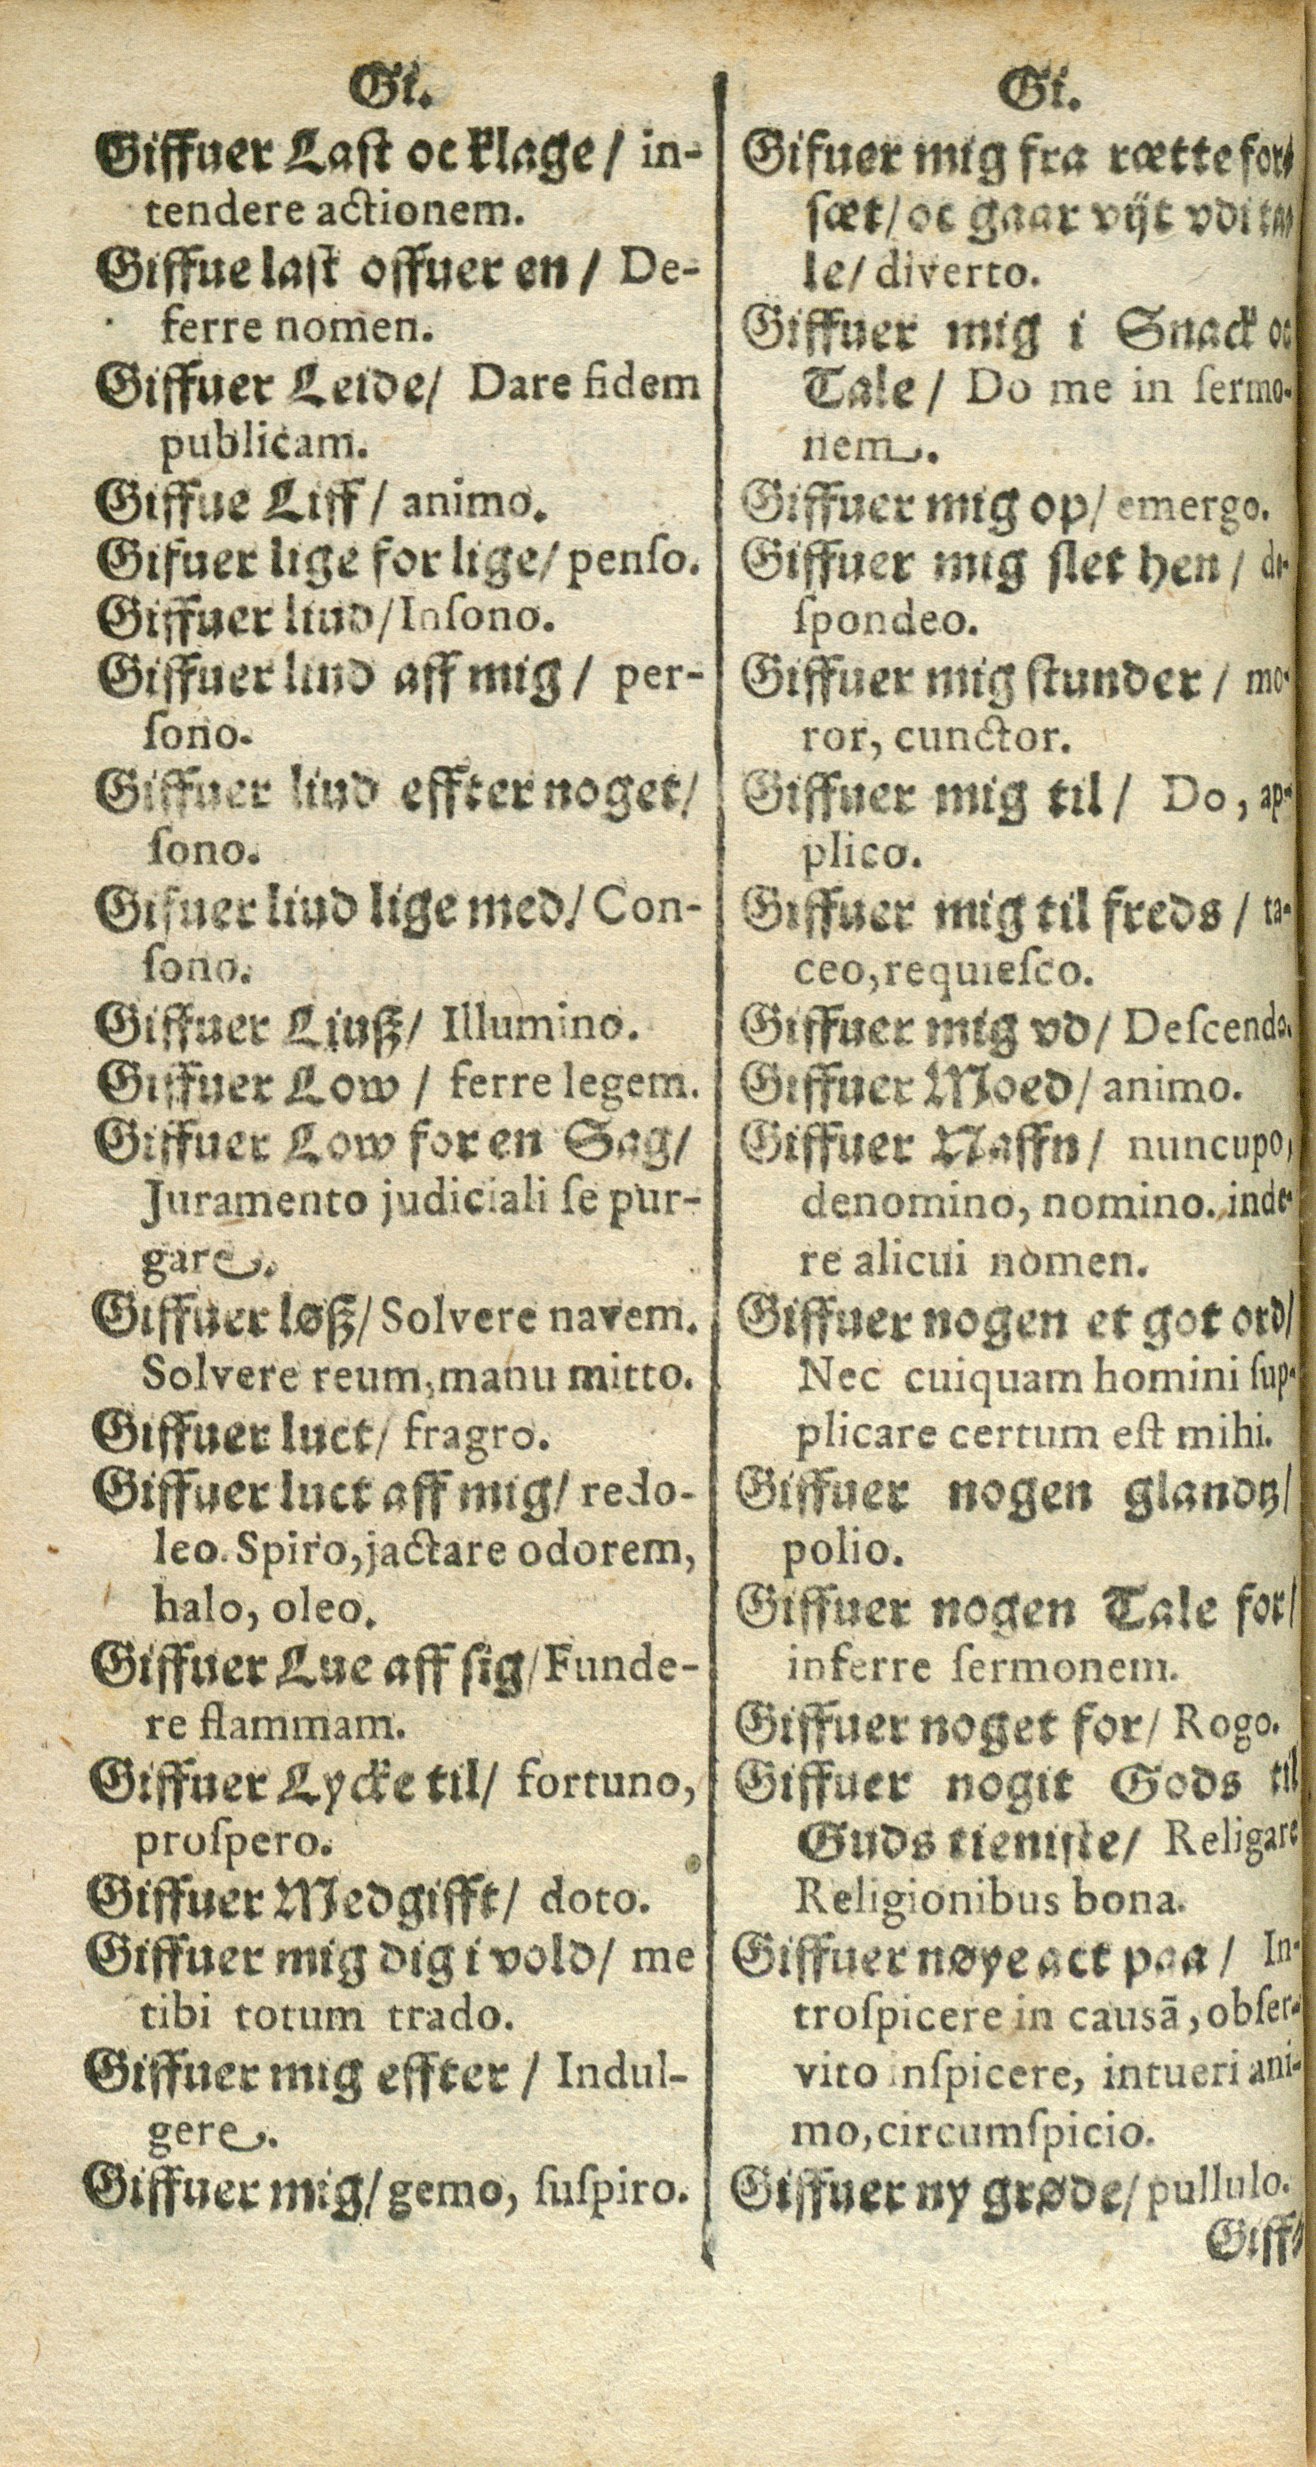 Gi.
Giffuer Last oc klage/ in-
tendere actionem.
Giffue last offuer en/ De-
ferre nomen.
Giffuer Leide/ Dare fidem
publicam.
Giffue Liff/ animo.
Gifuer lige for lige/ penſo.
Giffuer liud/ Inſono.
Giffuer liud aff mig/ per-
ſono.
Giffuer liud effter noget/
ſono.
Gifuer liud lige med/ Con-
ſono.
Giffuer Liuſz/ Illumino.
Giffuer Low/ ferre legem.
Giffuer Low for en Sag/
Juramento judiciali ſe pur-
gare.
Giffuer løſz/ Solvere navem.
Solvere reum, manu mitto.
Giffuer luct/ fragro.
Giffuer luct aff mig/ redo-
leo. Spiro, jactare odorem,
halo, oleo.
Giffuer Lue aff ſig/ Funde-
re flammam.
Giffuer Lycke til/ fortuno,
proſpero.
Giffuer Medgifft/ doto.
Giffuer mig dig i vold/ me
tibi totum trado.
Giffuer mig effter/ Indul-
gere.
Giffuer mig/ gemo, ſuſpiro.
Gi.
Gifuer mig fra rætte for-
ſæt/ oc gaar vijt vdi ta-
le/ diverto.
Giffuer mig i Snack oc
Tale/ Do me in ſermo-
nem.
Giffuer mig op/ emergo.
Giffuer mig ſlet hen/ de-
ſpondeo.
Giffuer mig ſtunder/ mo-
ror, cunctor.
Giffuer mig til/ Do, ap-
plico.
Giffuer mig til freds/ ta-
ceo, requieſco.
Giffuer mig vd/ Deſcendo.
Giffuer Moed/ animo.
Giffuer Naffn/ nuncupo,
denomino, nomino. inde-
re alicui nomen.
Giffuer nogen et got ord/
Nec cuiquam homini ſup-
plicare certum eſt mihi.
Giffuer nogen glandtz/
polio.
Giffuer nogen Tale for/
inferre ſermonem.
Giffuer noget for/ Rogo.
Giffuer nogit Gods til
Guds tieniſte/ Religare
Religionibus bona.
Giffuer nøye act paa/ In-
troſpicere in causã, obſer-
vito inſpicere, intueri ani-
mo, circumſpicio.
Giffuer ny grøde/ pullulo.
Giff-